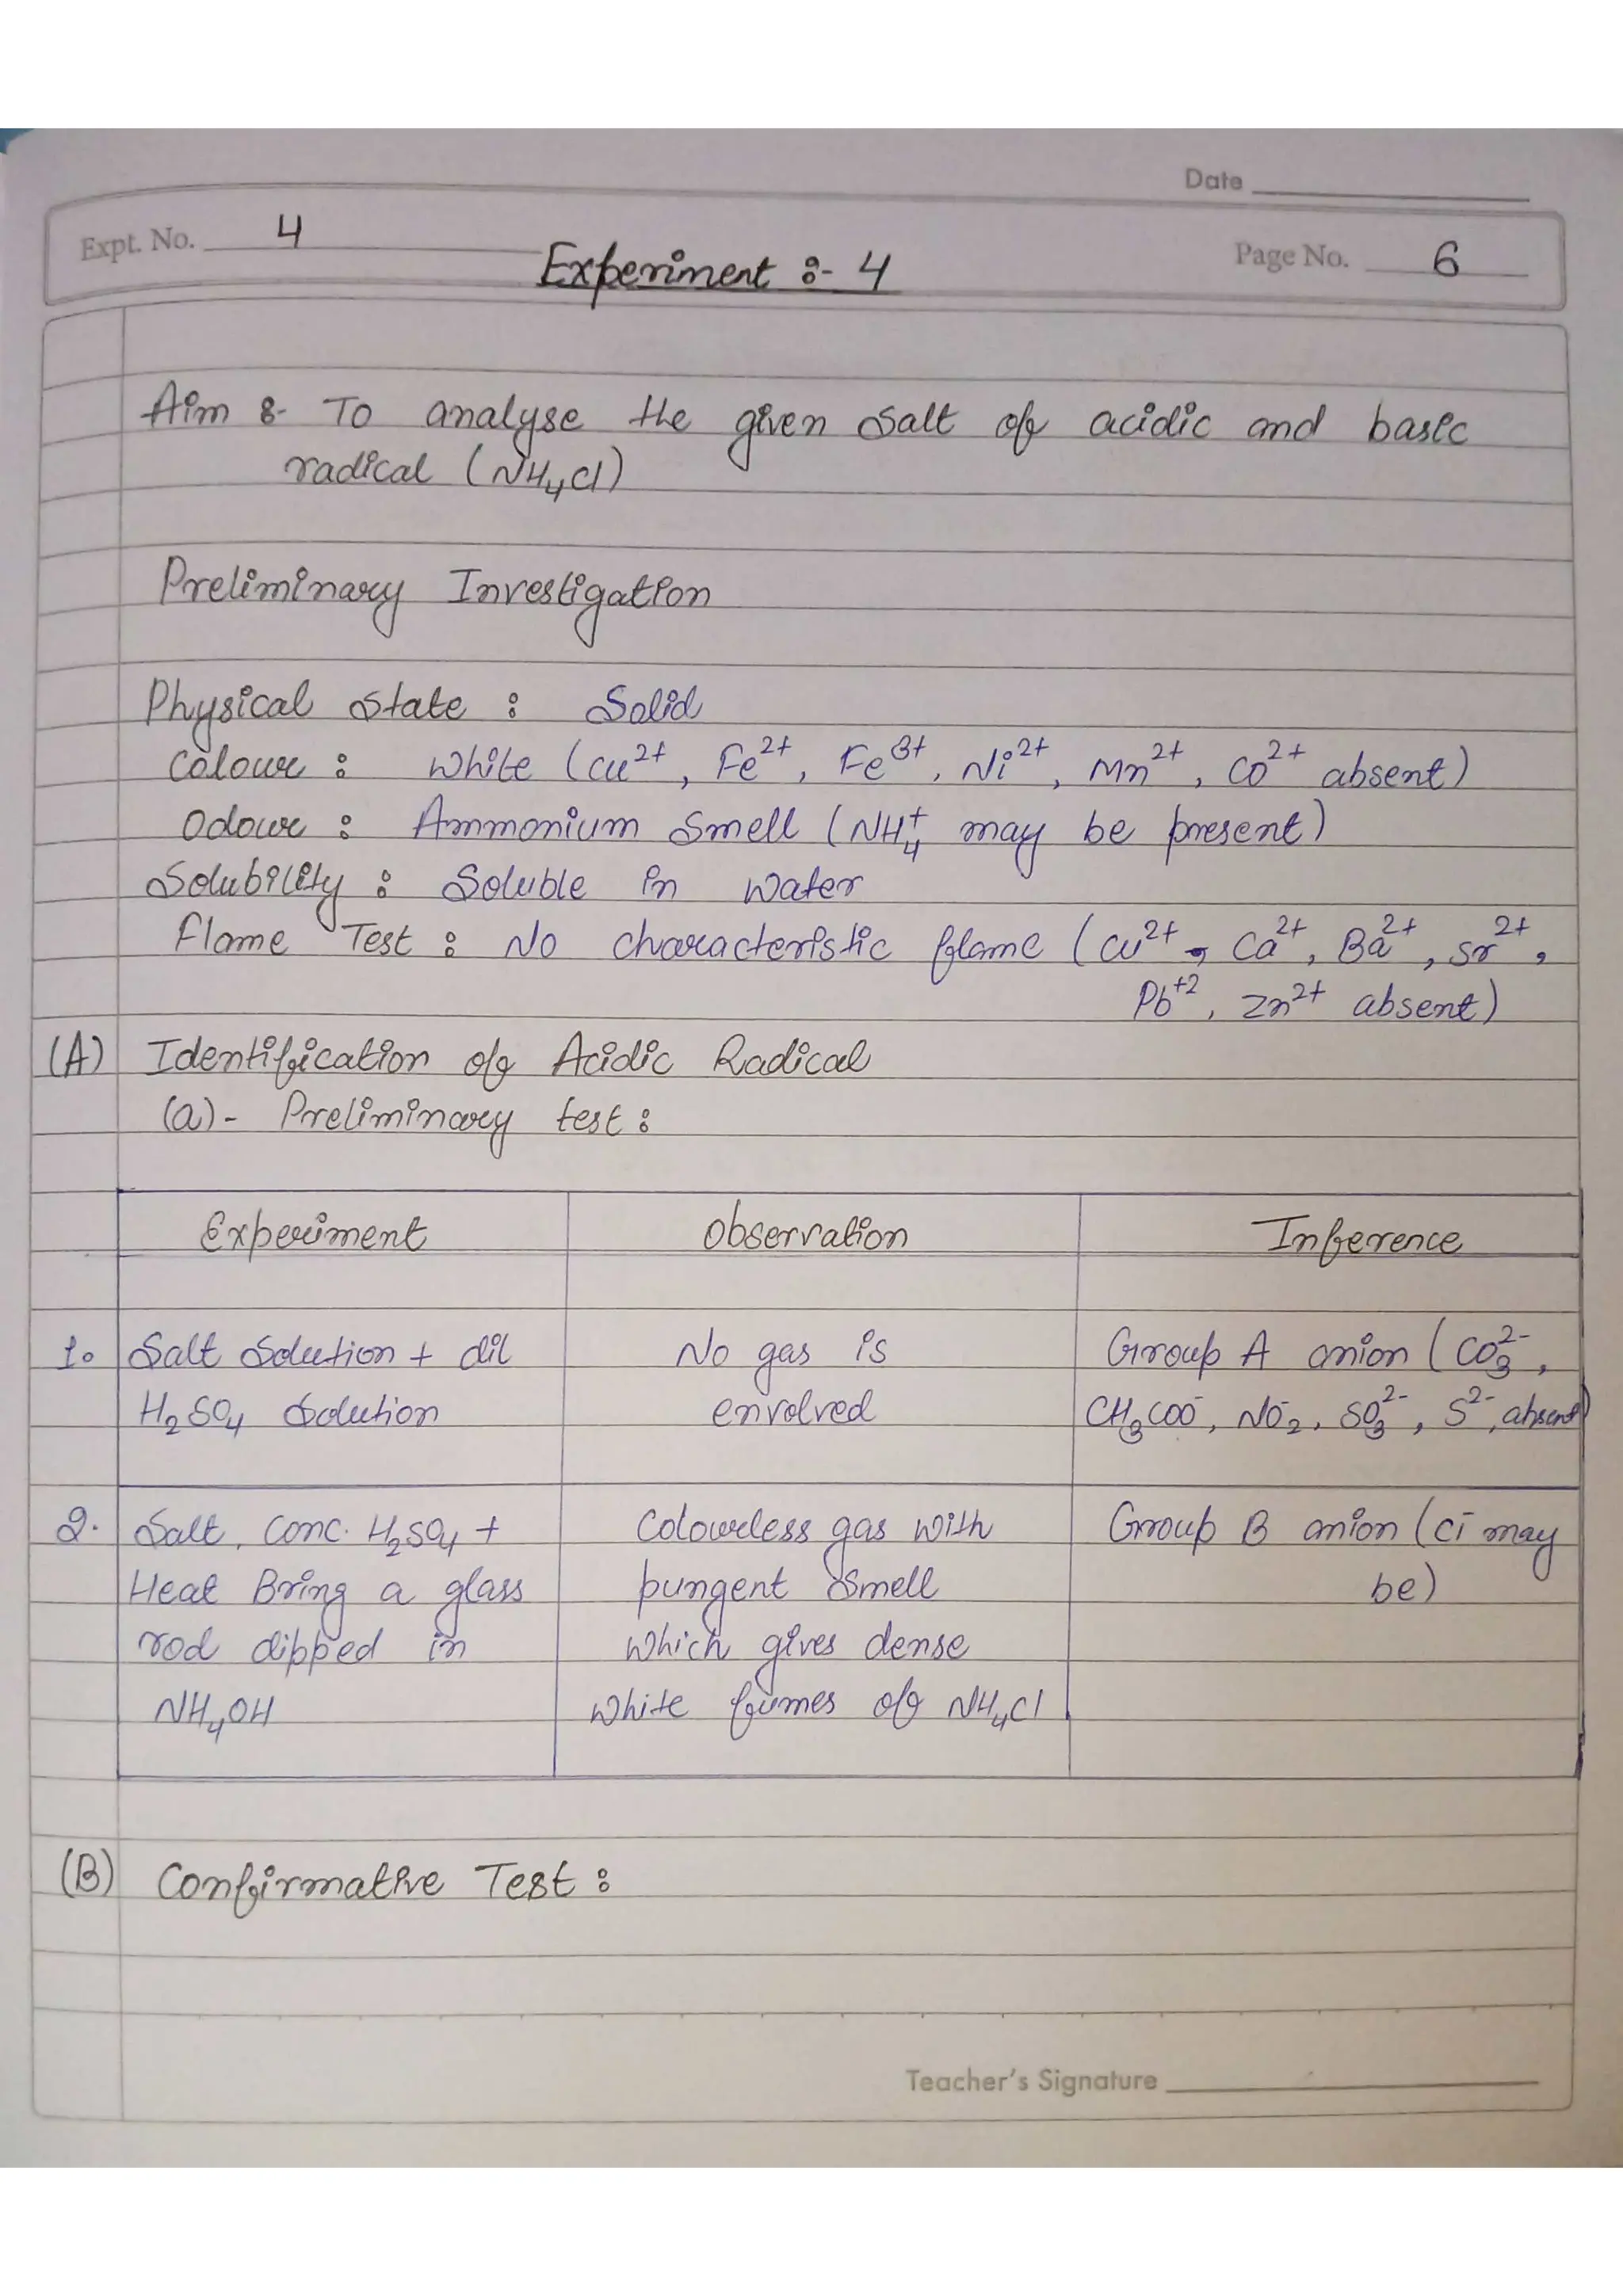 Date
Expt. No. 4
Experiment :- 4
Page No. 6
Aim :- To analyse the given salt of acidic and basic
radical (NH₄Cl)
Preliminary Investigation
Physical state : Solid
Colour : White (Cu²⁺, Fe²⁺, Fe³⁺, Ni²⁺, Mn²⁺, Co²⁺ absent)
Odour : Ammonium Smell (NH₄⁺ may be present)
Solubility : Soluble in water
Flame Test : No characteristic flame (Cu²⁺, Ca²⁺, Ba²⁺, Sr²⁺,
Pb⁺², Zn²⁺ absent)
(A) Identification of Acidic Radical
(a)- Preliminary test :
Experiment Observation Inference
1. Salt Solution + dil No gas is Group A anion (CO₃²⁻,
H₂SO₄ Solution envolved CH₃COO⁻, NO⁻₂, SO₃²⁻, S²⁻, absent)
2. Salt, Conc. H₂SO₄ + Colourless gas with Group B anion (Cl⁻ may
Heat Bring a glass pungent Smell be)
rod dipped in which gives dense
NH₄OH white fumes of NH₄Cl
(B) Confirmative Test :
Teacher's Signature